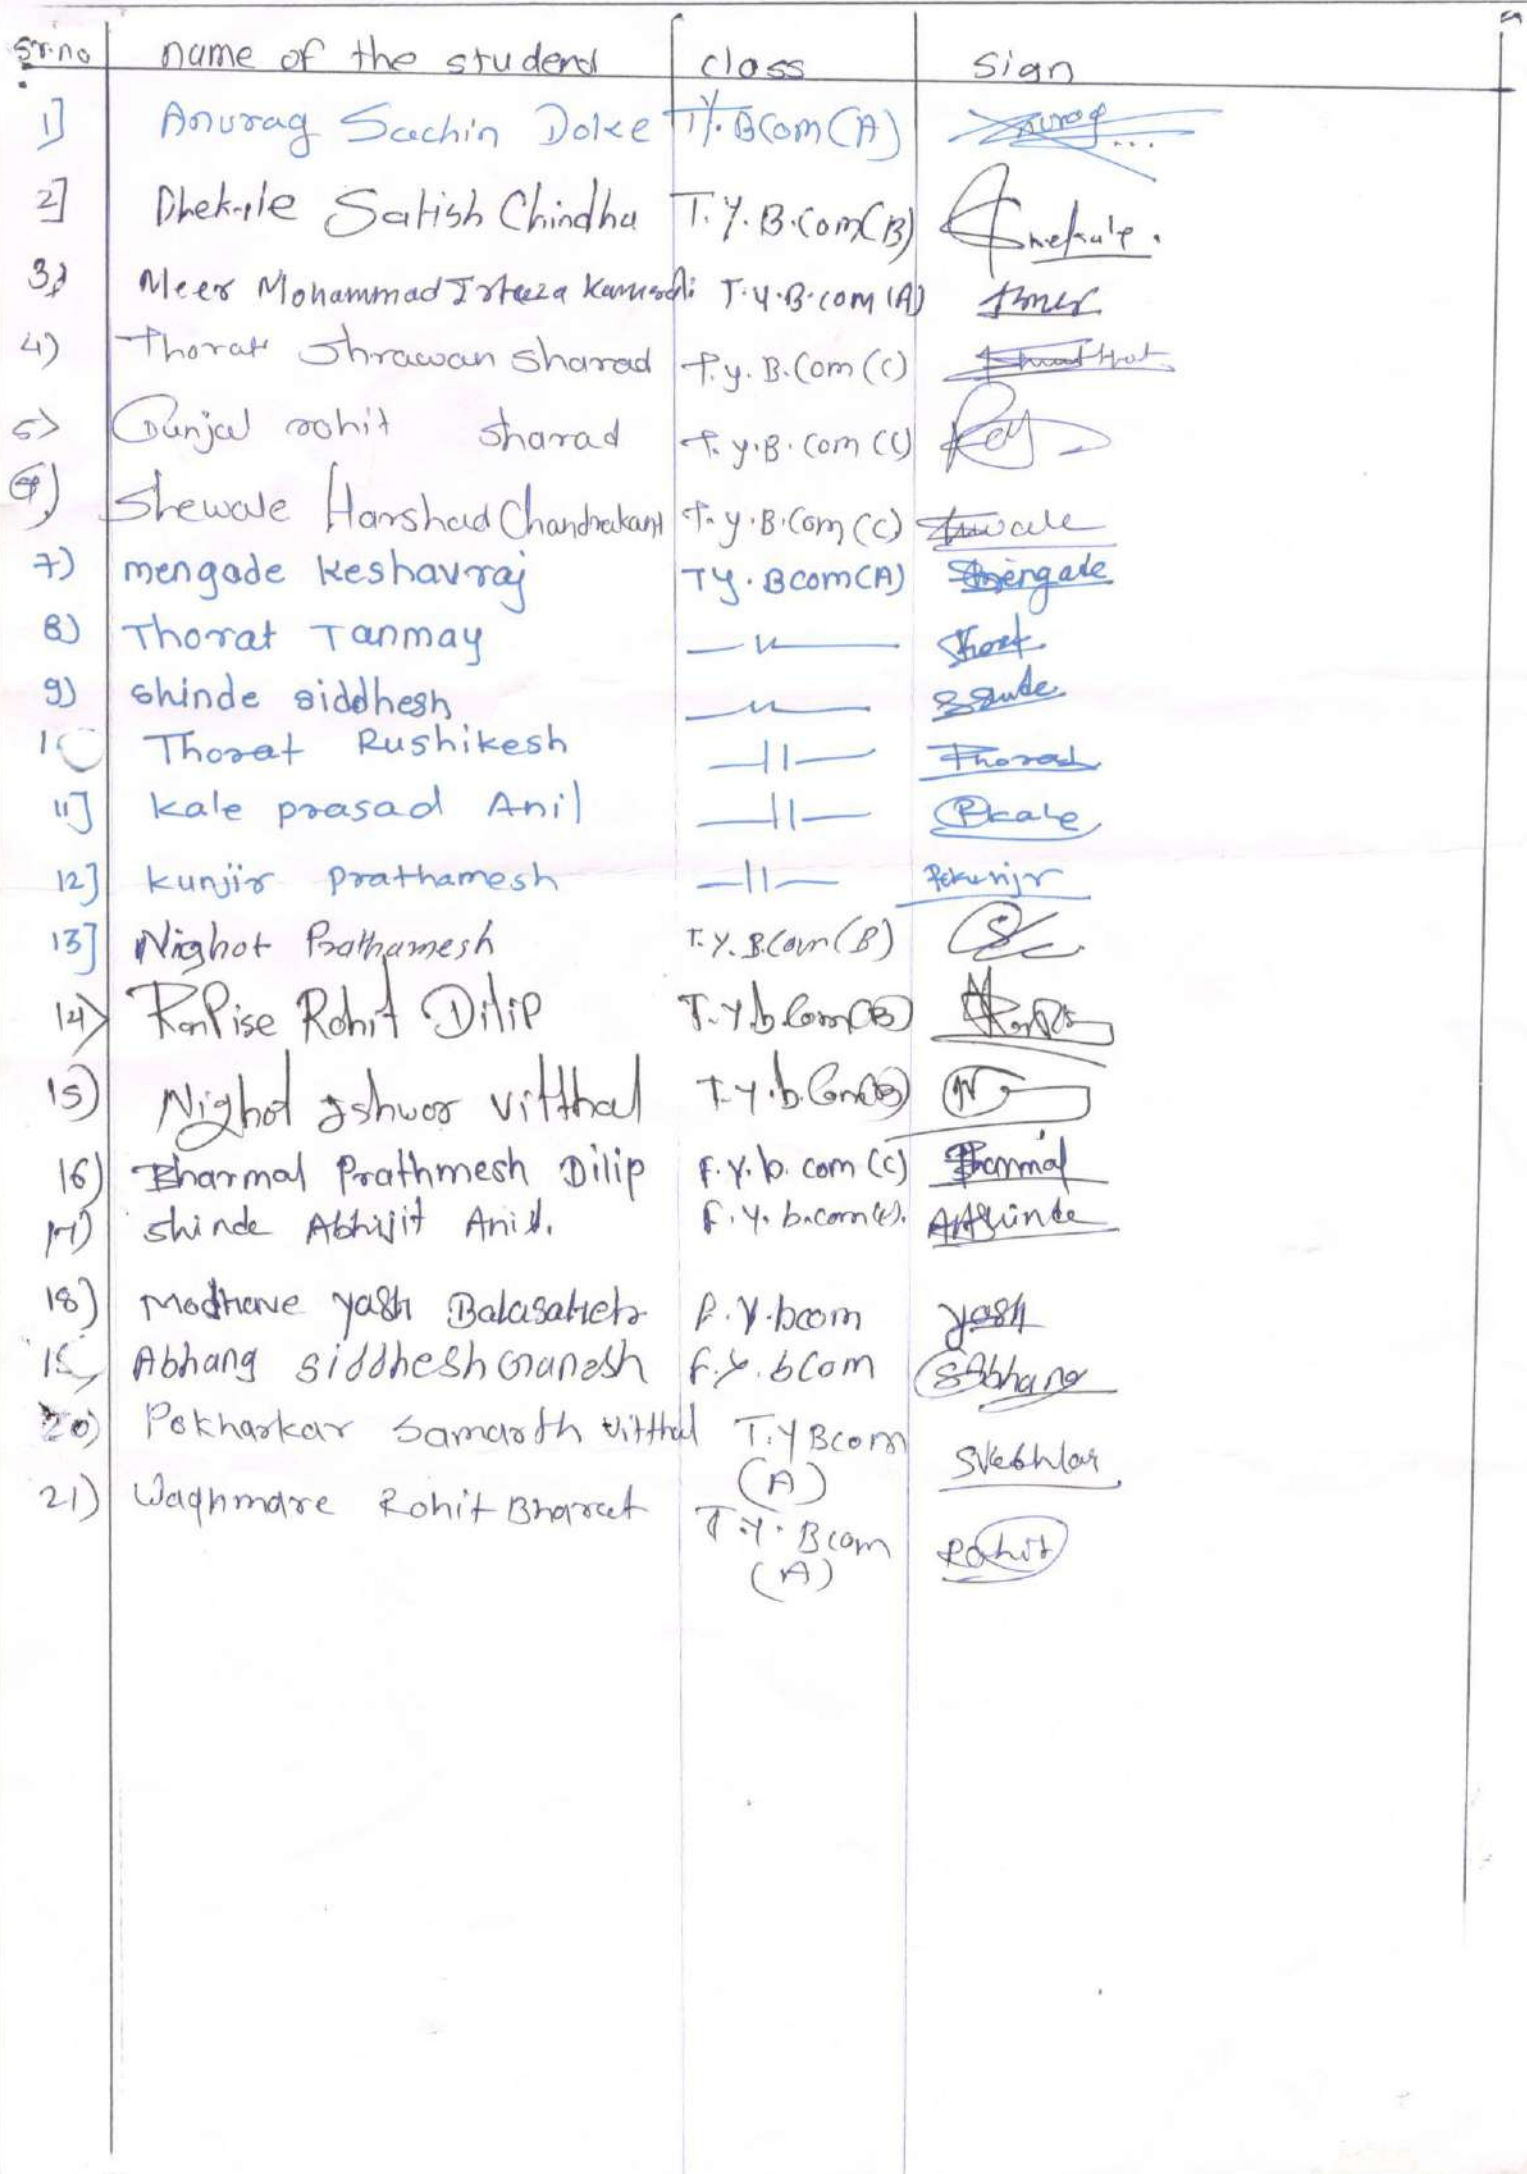 Sr.no name of the studend class Sign
1] Anurag Sachin Doke T.Y.BCom(A) Anurag...
2] Dhekale Satish Chindhu T.Y.B.Com(B)
3) Meer Mohammad Irteeza T.Y.B.com(A)
4) Thorat Shrawan Sharad T.y.B.Com(C)
5) Gunjal rohit sharad T.y.B.com(C)
Shewale Harshad Chandrakant T.y.B.Com(C) Shewale
7) mengade keshavraj TY.Bcom(A) Smengade
8) Thorat Tanmay —〃—
9) shinde siddhesh —〃—
10 Thorat Rushikesh —11— Thorat
11] kale prasad Anil —11— Pkale
12] kunjir prathamesh —11— Pkunjir
13] Nighot Prathamesh T.Y.B.Com(B)
14) RanPise Rohit Dilip T.Y.b.Com(B)
15) Nighot Ishwor vitthal T.Y.b.Com(B)
16) Bharmal Prathmesh Dilip F.Y.b.com(C) Bharmal
17) shinde Abhijit Anil. F.Y.b.com(c).
18) Modhave yash Balasaheb F.Y.bcom yash
19 Abhang siddhesh Ganesh F.Y.bCom SAbhang
20) Pokharkar Samarth vitthal T.Y Bcom
(A)
21) Waghmare Rohit Bharat T.Y.Bcom Rohit
(A)